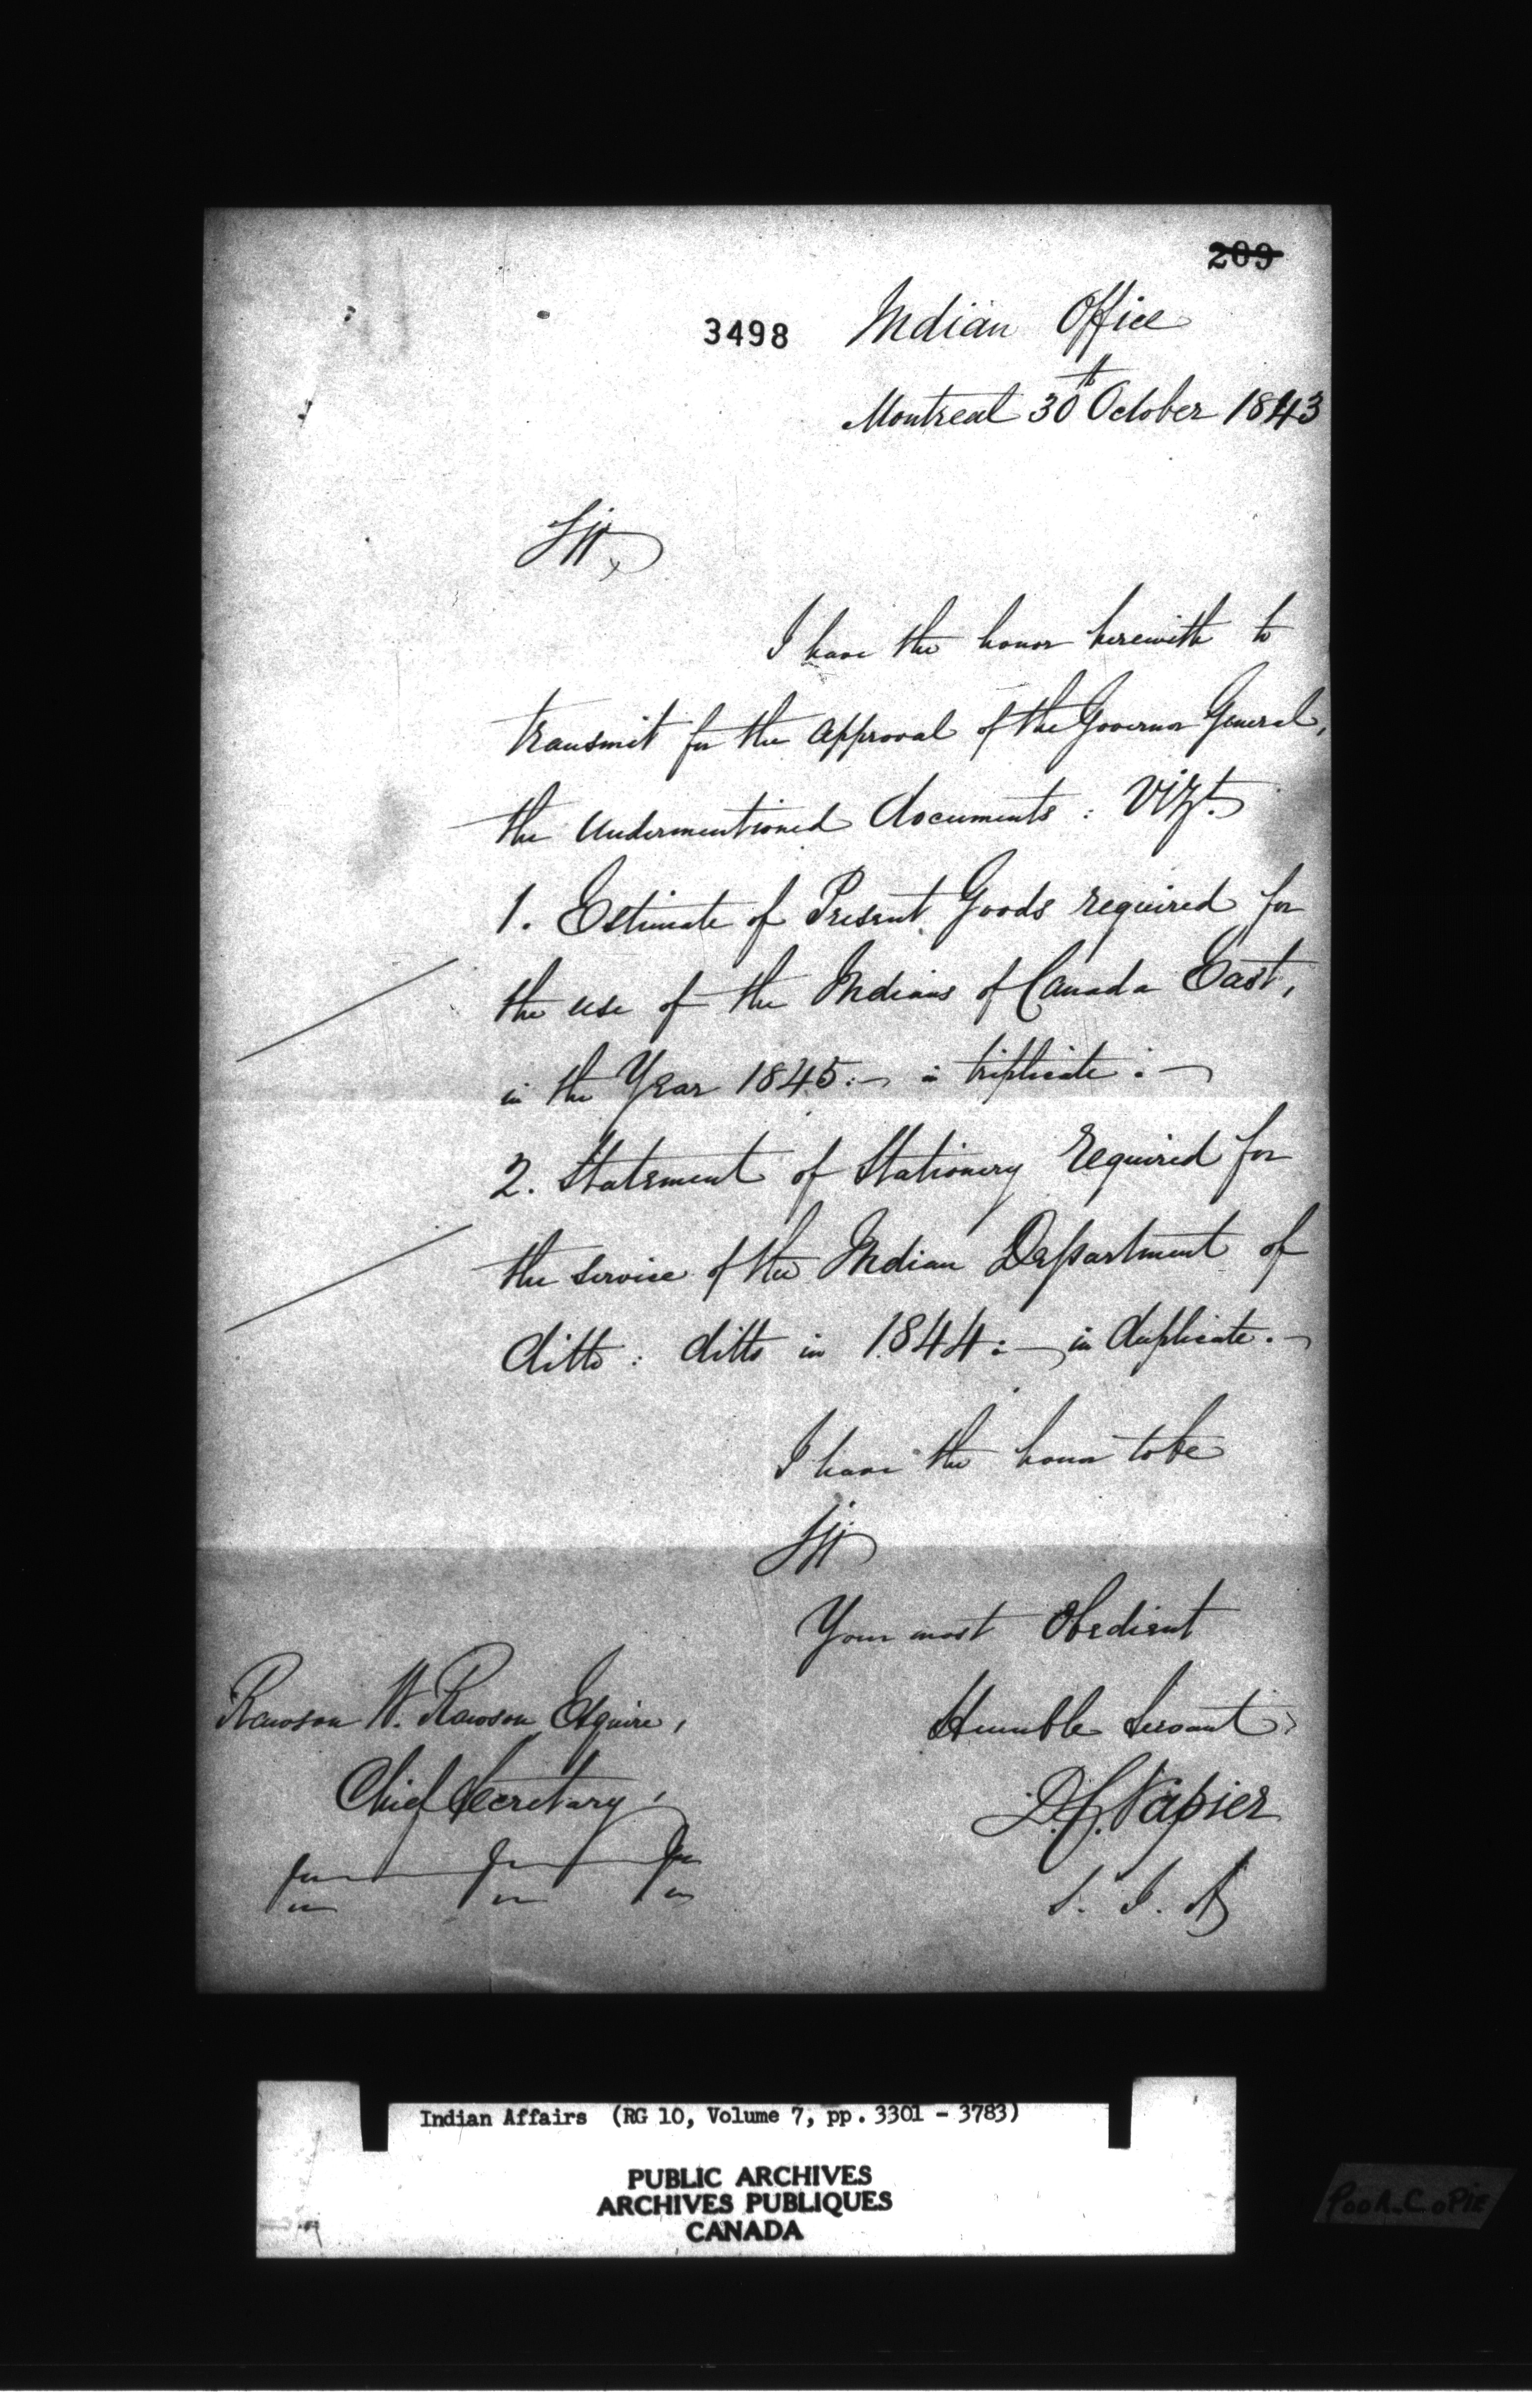 209
3498
Indian Office
Montreal 30th October 1843
Sir,
I have the honor herewith to
transmit for the approval of the Governor General,
the undermentioned documents : Vizt.
1. Estimate of Present Goods required for
the use of the Indians of Canada East,
in the Year 1845 :— in triplicate :—
2. Statement of Stationery required for
the service of the Indian Department of
ditto : ditto in 1844 :— in duplicate.—
I have the honor to be
Sir
Your most Obedient
Humble Servant
D.C. Napier
S. I. A
Rawson W. Rawson Esquire,
Chief Secretary,
Indian Affairs (RG 10, Volume 7, pp. 3301 - 3783)
PUBLIC ARCHIVES
ARCHIVES PUBLIQUES
CANADA
POOR COPIE